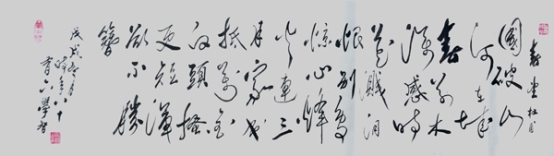 春望 杜甫
國破山
河在城
春草木
深感時
花濺淚
恨別鳥
惊心烽
火連三
月家書
抵萬金
白頭搔
更短渾
欲不勝
簪
戊戌
時年八十